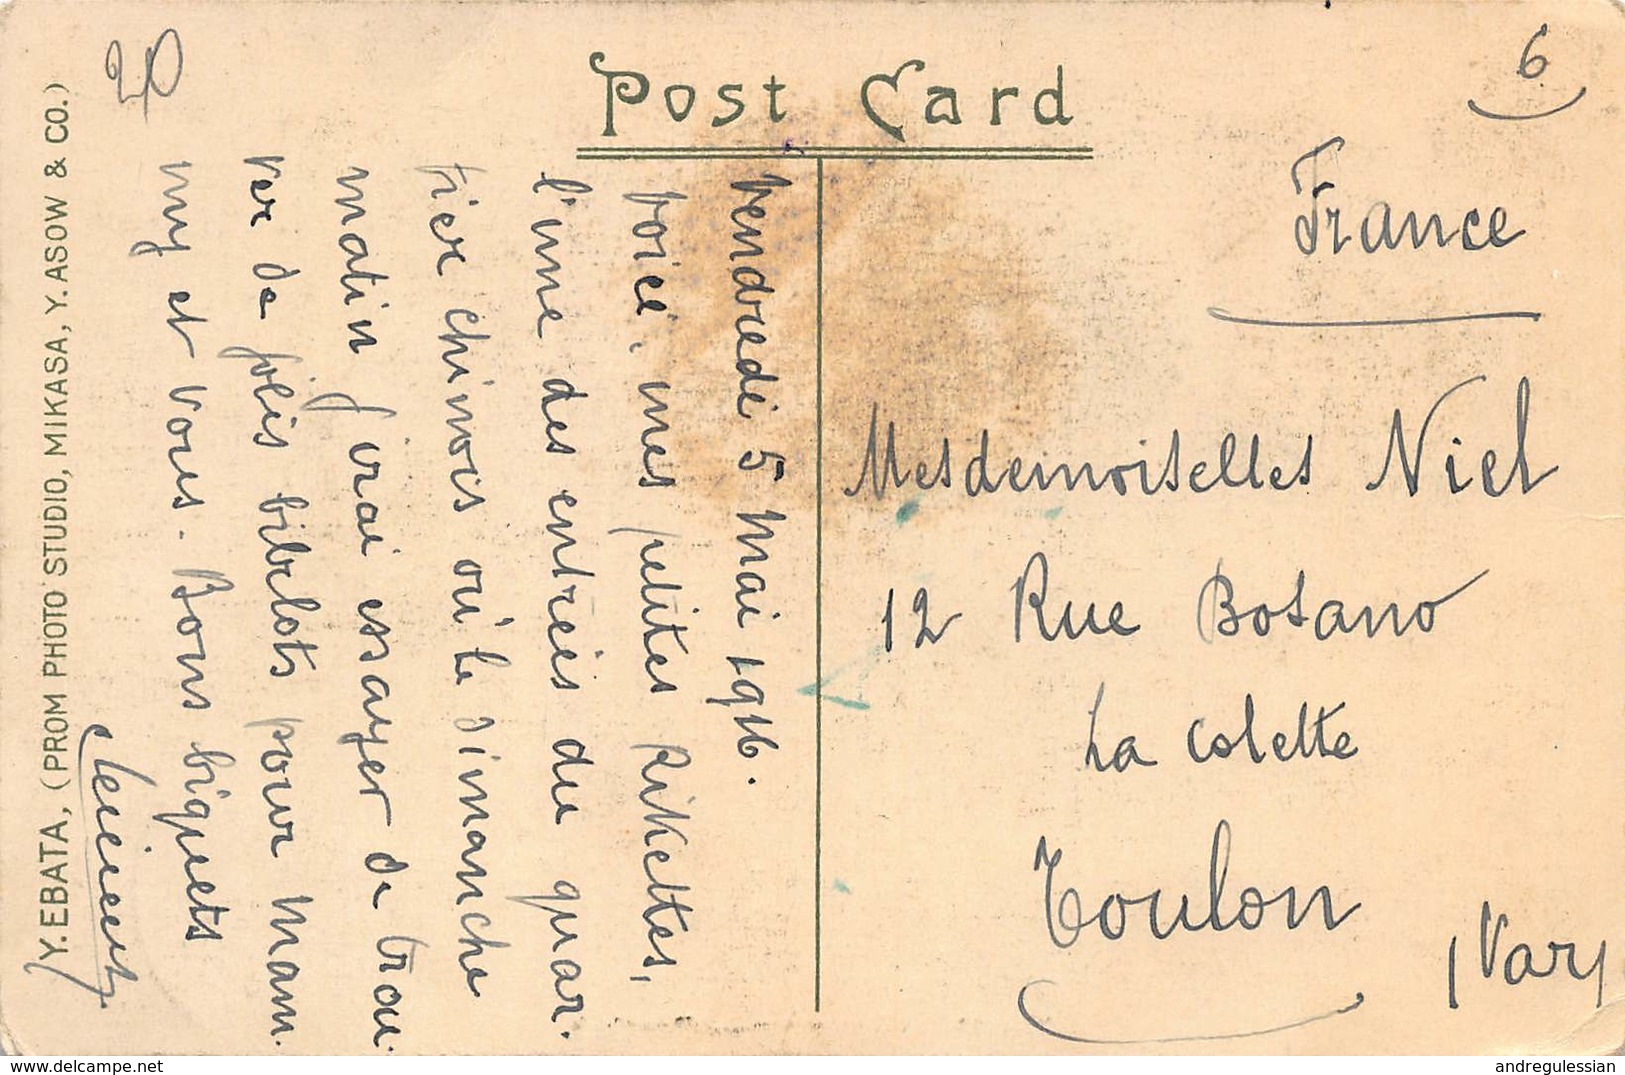 Post Card
6
France
Mesdemoiselles Niel
12 Rue Bosano
La Colette
Toulon
(Var)
Vendredi 5 Mai 1916.
Voici, mes petites Rikettes,
l'une des entrées du quar-
tier chinois où le dimanche
matin j'irai essayer de trou-
ver de jolis bibelots pour Mam-
my et Vous. Bons biquets
Y. EBATA, (PROM PHOTO STUDIO, MIKASA, Y. ASOW & CO.)
andregulessian